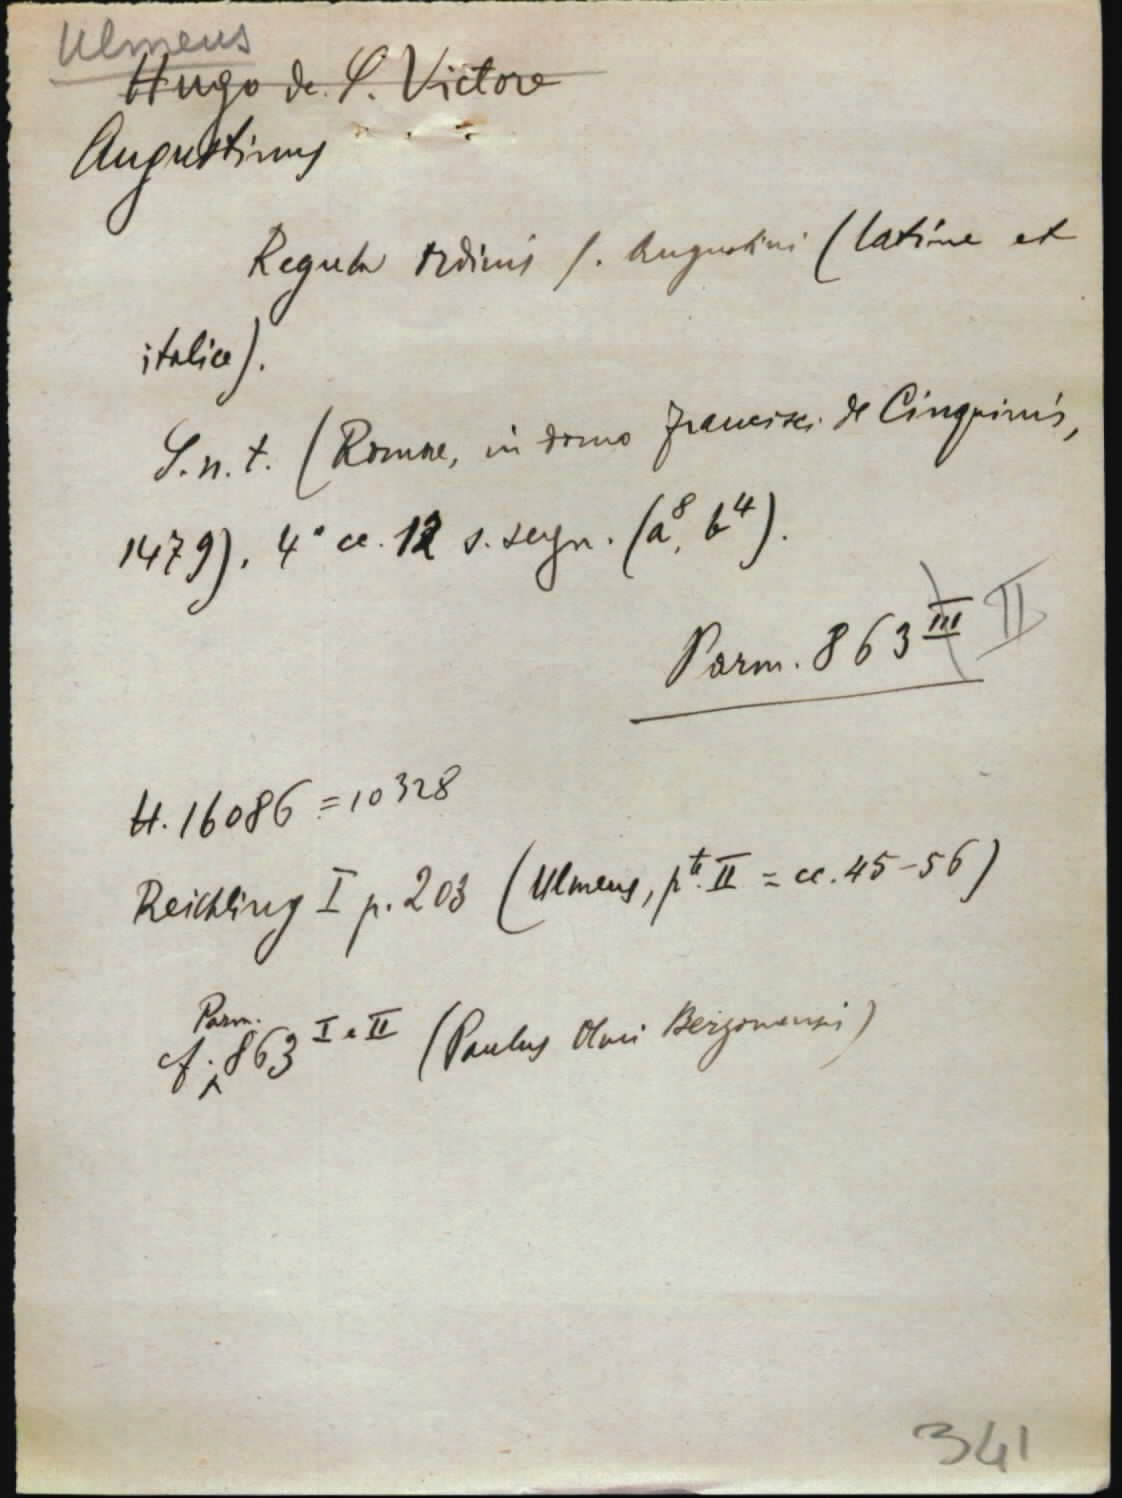 Ulmeus
Hugo de S. Victore
Augustinus
Regula ordinis s. Augustini (latine et
italice).
S.n.t. (Romae, in domo Francisci de Cinquinis,
1479). 4° cc. 12 s. segn. (a⁸, b⁴).
Parm. 863 III II
H. 16086 = 10328
Reichling I p. 203 (Ulmeus, pte. II = cc. 45-56)
cf. Parm. 863 I e II (Paulus Olmi Bergomensis)
341